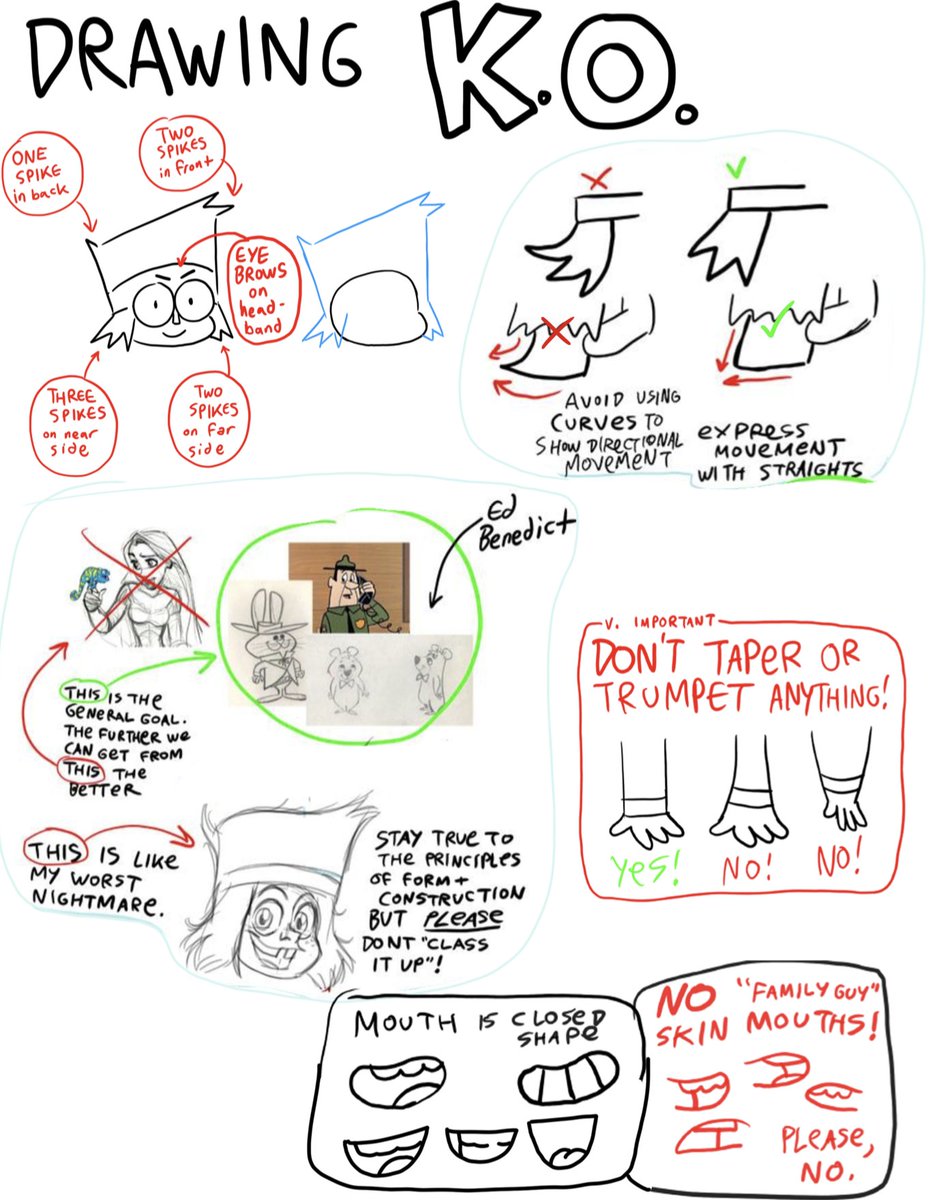 DRAWING K.O.
ONE
SPIKE
in back
TWO
SPIKES
in front
EYE
BROWS
on
head-
band
THREE
SPIKES
on near
side
TWO
SPIKES
on far
side
AVOID USING
CURVES TO
SHOW DIRECTIONAL
MOVEMENT
EXPRESS
MOVEMENT
WITH STRAIGHTS
Ed
Benedict
THIS IS THE
GENERAL GOAL.
THE FURTHER WE
CAN GET FROM
THIS THE
BETTER
THIS IS LIKE
MY WORST
NIGHTMARE.
STAY TRUE TO
THE PRINCIPLES
OF FORM +
CONSTRUCTION
BUT PLEASE
DONT "CLASS
IT UP"!
V. IMPORTANT
DON'T TAPER OR
TRUMPET ANYTHING!
YES!
NO!
NO!
MOUTH IS CLOSED
SHAPE
NO "FAMILY GUY"
SKIN MOUTHS!
PLEASE,
NO.